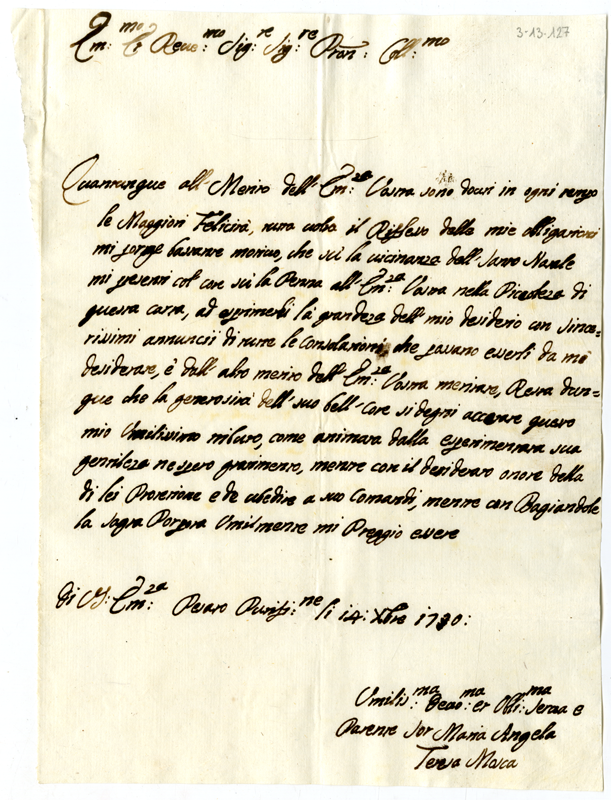 3-13-127
Em:mo Et Reue:mo Sig:re Sig:re Pron: Coll:mo
Quantunque all-Merito dell-Em:za Vostra sono douti in ogni tempo
le Maggiori Felicità, tutta uolta il Riflesso delle mie obligationi
mi porge bastante motiuo, che sù la uicinanza dell-Santo Natale
mi presenti col core sù la Penna all-Em:za Vostra nella Picoleza di
questa carta, ad esprimerli la grandeza dell-mio desiderio con since=
rissimi annuncii di tutte le Consolationi, che possano esserli da mè
desiderate, è dall-alto merito dell-Em:za Vostra meritate, Resta dun=
que che la generosità dell-suo bell-Core si degni accetare questo
mio Umilissimo tributo, come animata dalla esperimentata sua
gentileza ne spero gradimento, mentre con il desiderato onore della
di lei Protetione e de ubedire a suo Comandi, mentre con Bagiandole
la Sagra Porpora Umilmente mi Preggio essere
di V: Em:za Pesaro Purifi:ne li 14: Xbre 1730:
Umilis:ma Deuo:ma et Obli:ma Serua e
Parente Sor Maria Angela
Teresa Mosca